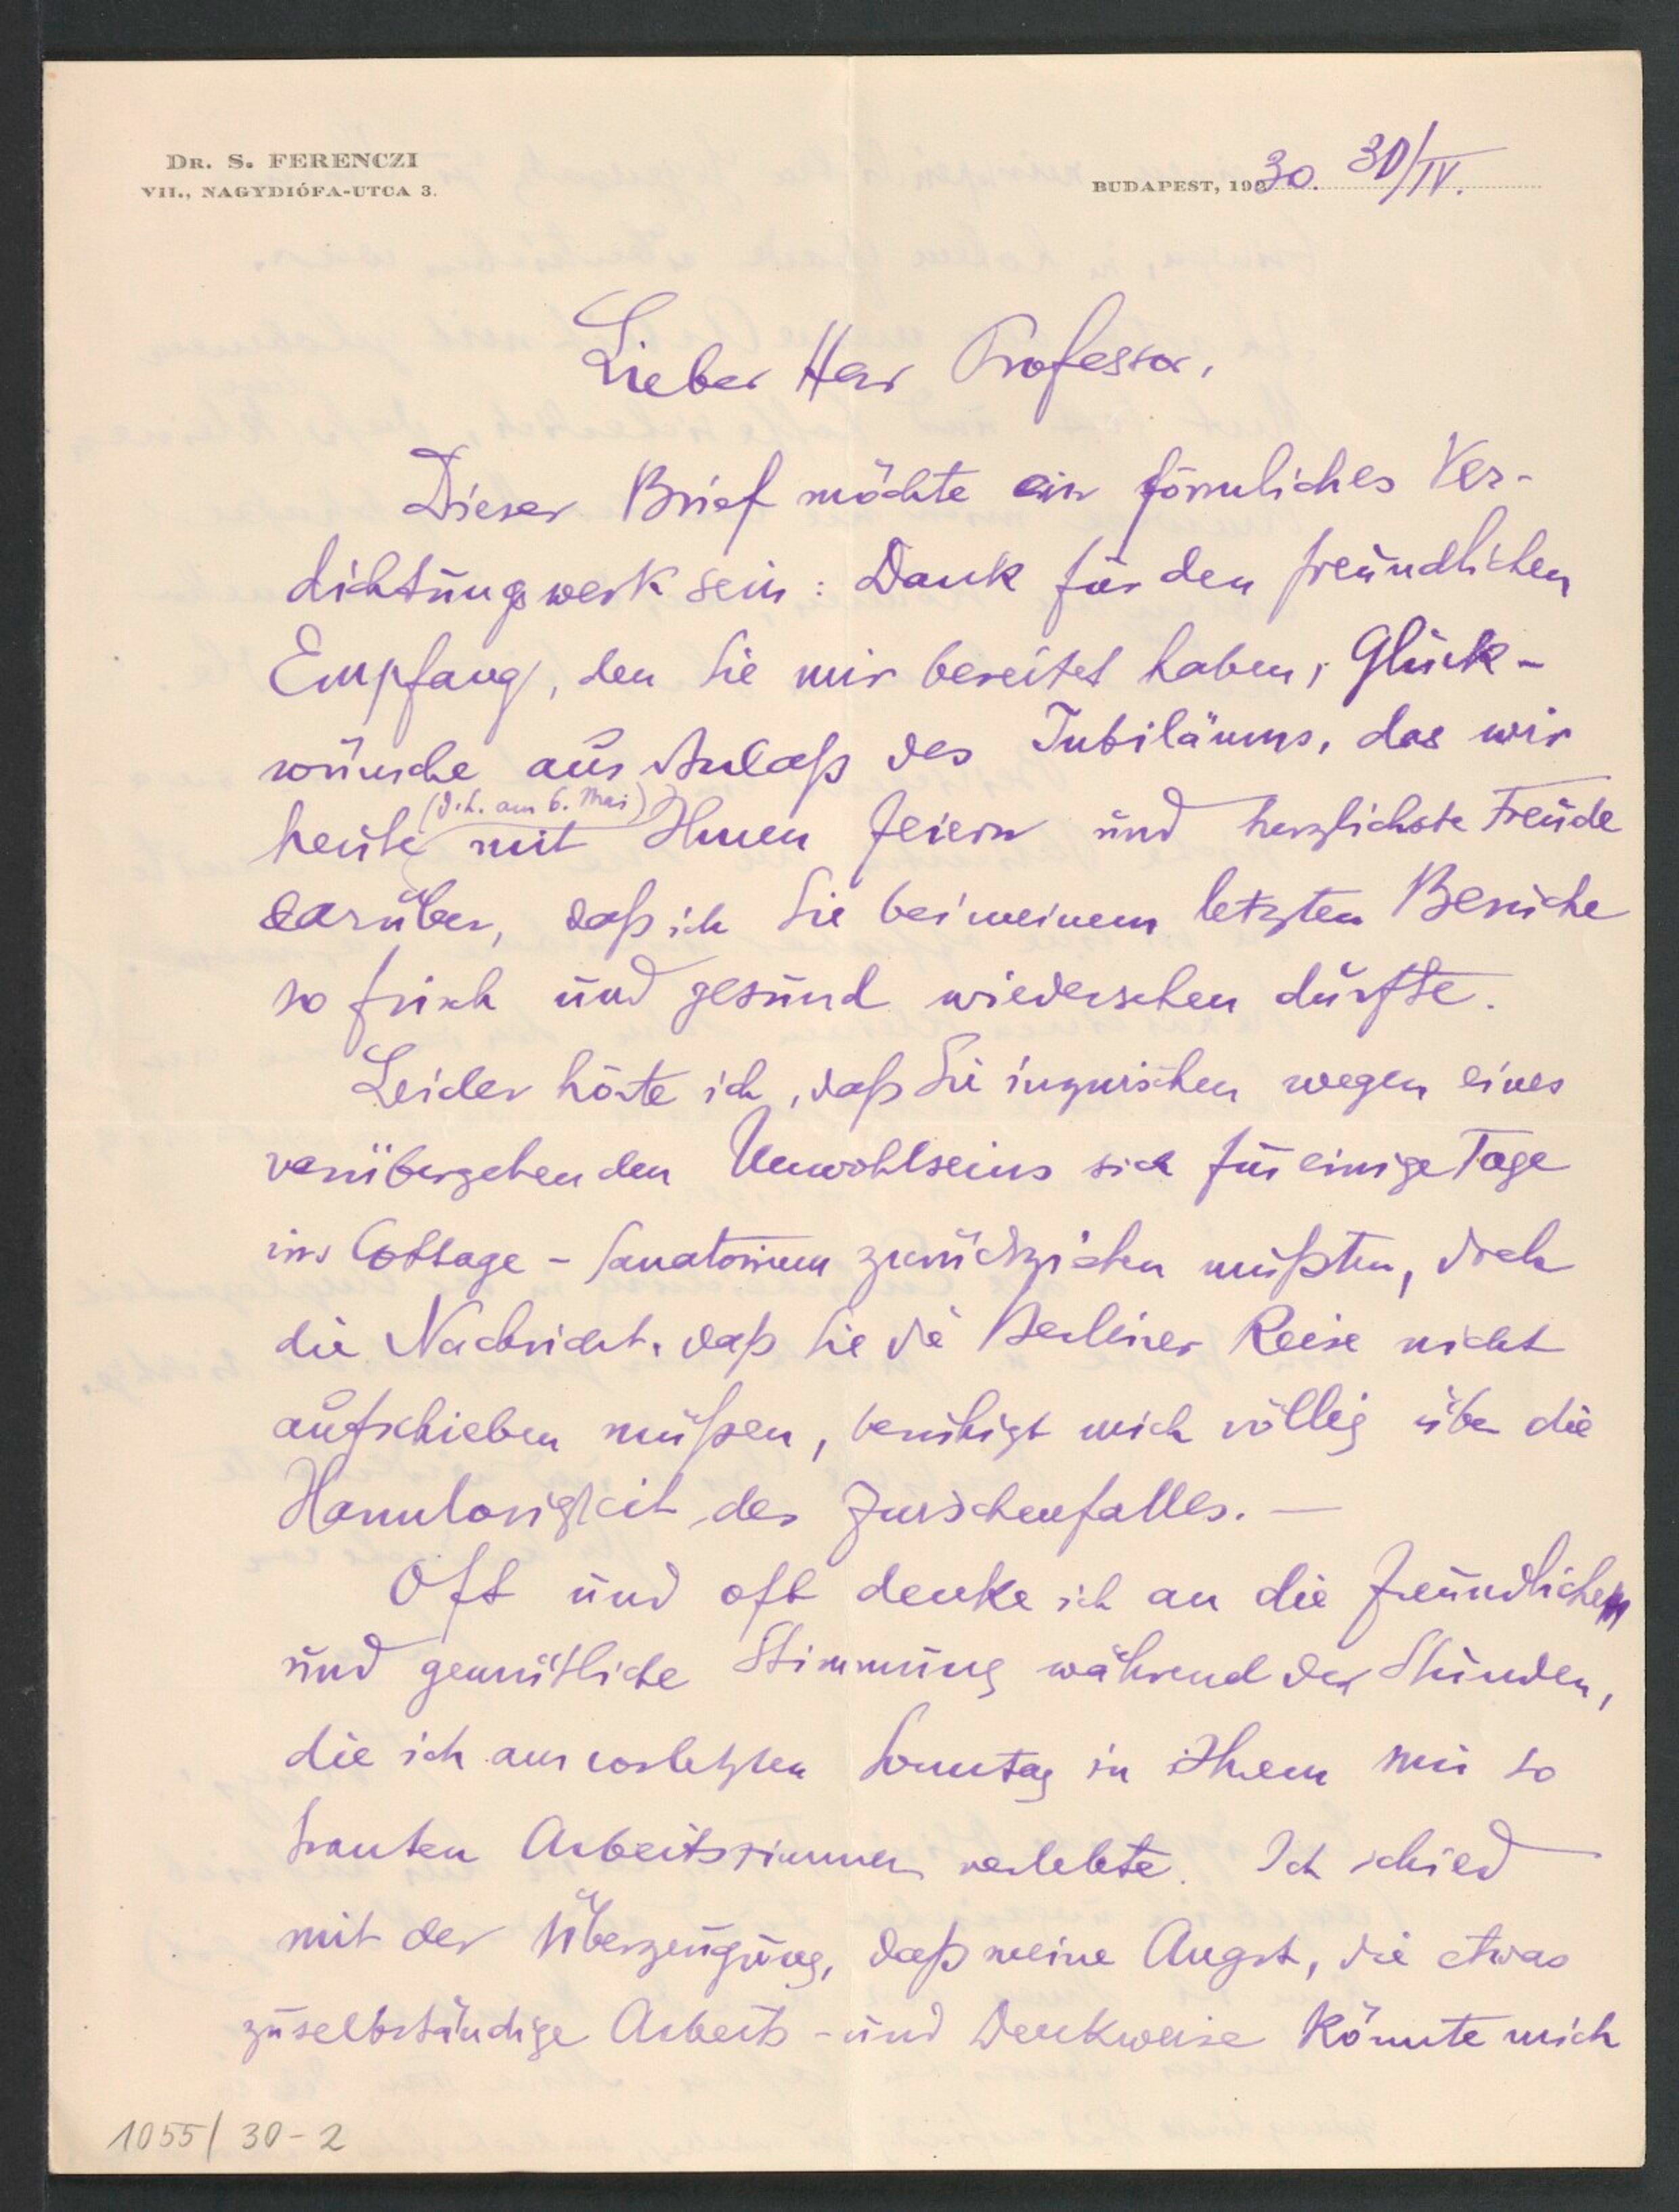 DR. S. FERENCZI
VII., NAGYDIÓFA-UTCA 3.
BUDAPEST, 192 30. 30/IV.
Lieber Herr Professor,
Dieser Brief möchte ein förmliches Ver-
dichtungswerk sein: Dank für den freundlichen
Empfang, den Sie mir bereitet haben, Glück-
wünsche aus Anlaß des Jubiläums, das wir
(d.h. am 6. Mai)
heute mit Ihnen feiern und herzlichste Freude
darüber, daß ich Sie bei meinem letzten Besuche
so frisch und gesund wiedersehen durfte.
Leider hörte ich, daß Sie inzwischen wegen eines
vorübergehenden Unwohlseins sich für einige Tage
ins Cottage-Sanatorium zurückziehen mußten, doch
die Nachricht, daß Sie die Berliner Reise nicht
aufschieben müßen, beruhigt mich völlig über die
Harmlosigkeit des Zwischenfalles. —
Oft und oft denke ich an die freundlichen
und gemütliche Stimmung während der Stunden,
die ich am vorletzten Sonntag in Ihrem mir so
trauten Arbeitszimmer verlebte. Ich schied
mit der Überzeugung, daß meine Angst, die etwas
zu selbständige Arbeits- und Denkweise könnte mich
1055/30-2